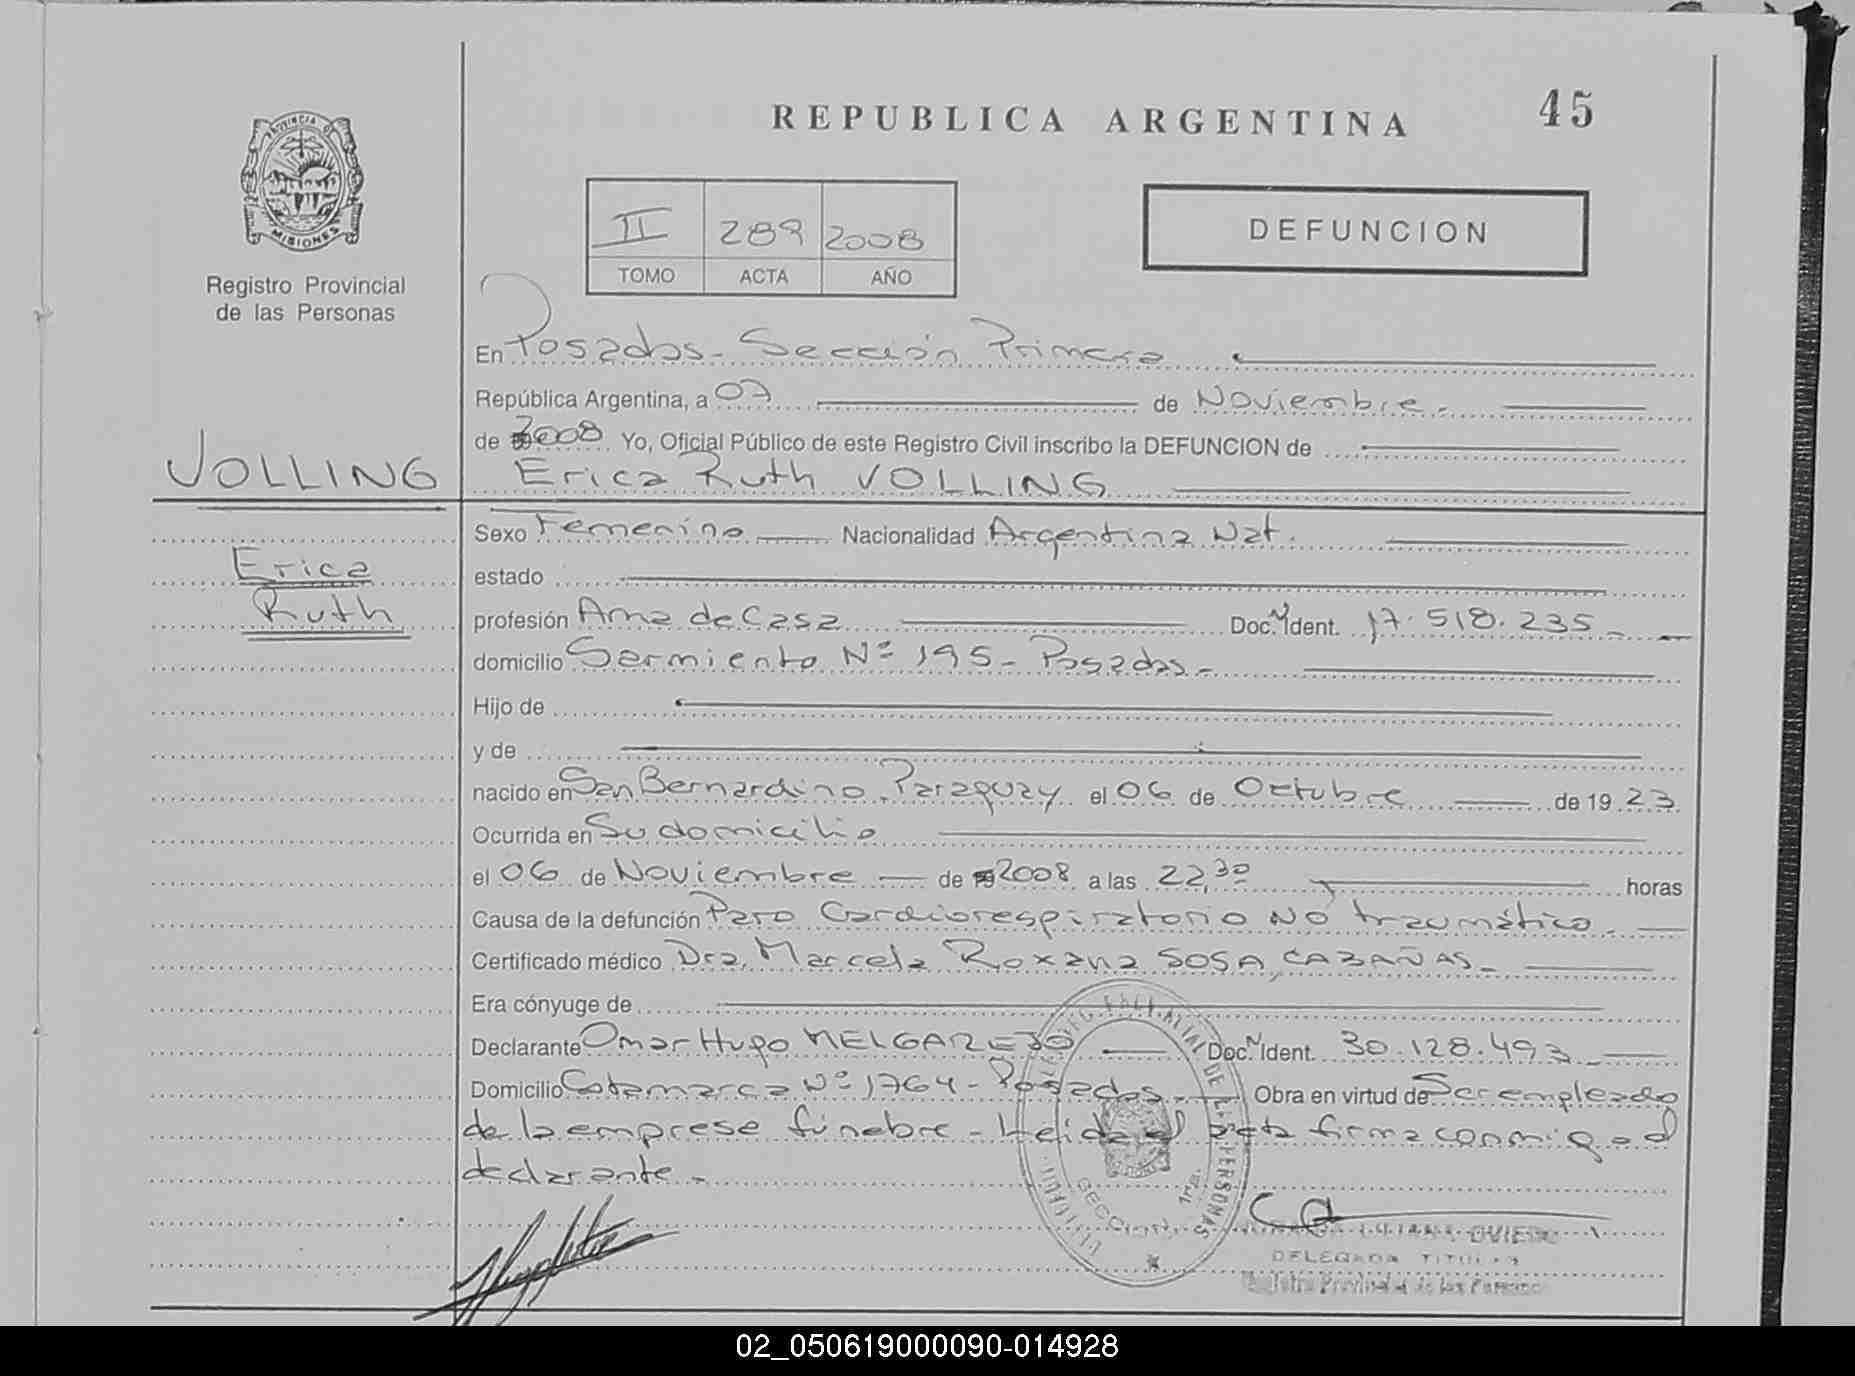 REPUBLICA ARGENTINA
45
PROVINCIA DE
MISIONES
Registro Provincial
de las Personas
II 289 2008
TOMO ACTA AÑO
DEFUNCION
En Posadas - Sección Primera
República Argentina, a 07 de Noviembre.
de 2008 Yo, Oficial Público de este Registro Civil inscribo la DEFUNCION de
VOLLING
Erica Ruth VOLLING
Erica
Ruth
Sexo Femenino Nacionalidad Argentina Nat.
estado
profesión Ama de Casa Doc. N Ident. 17.518.235
domicilio Sarmiento Nº 195 - Posadas -
Hijo de
y de
nacido en San Bernardino, Paraguay el 06 de Octubre de 1923
Ocurrida en Su domicilio
el 06 de Noviembre de 2008 a las 22,30 horas
Causa de la defunción Paro Cardiorespiratorio NO traumático.
Certificado médico Dra. Marcela Roxana SOSA CABAÑAS -
Era cónyuge de
Declarante Omar Hugo MELGAREJO Doc. N Ident. 30.128.493
Domicilio Catamarca Nº 1764 - Posadas. Obra en virtud de Ser empleado
de la empresa fúnebre - Leida el acta firma conmigo el
declarante -
DE LAS PERSONAS
SECCION 1ra.
LILIANA OVIEDO
DELEGADA TITULAR
Registro Provincial de las Personas
02_050619000090-014928